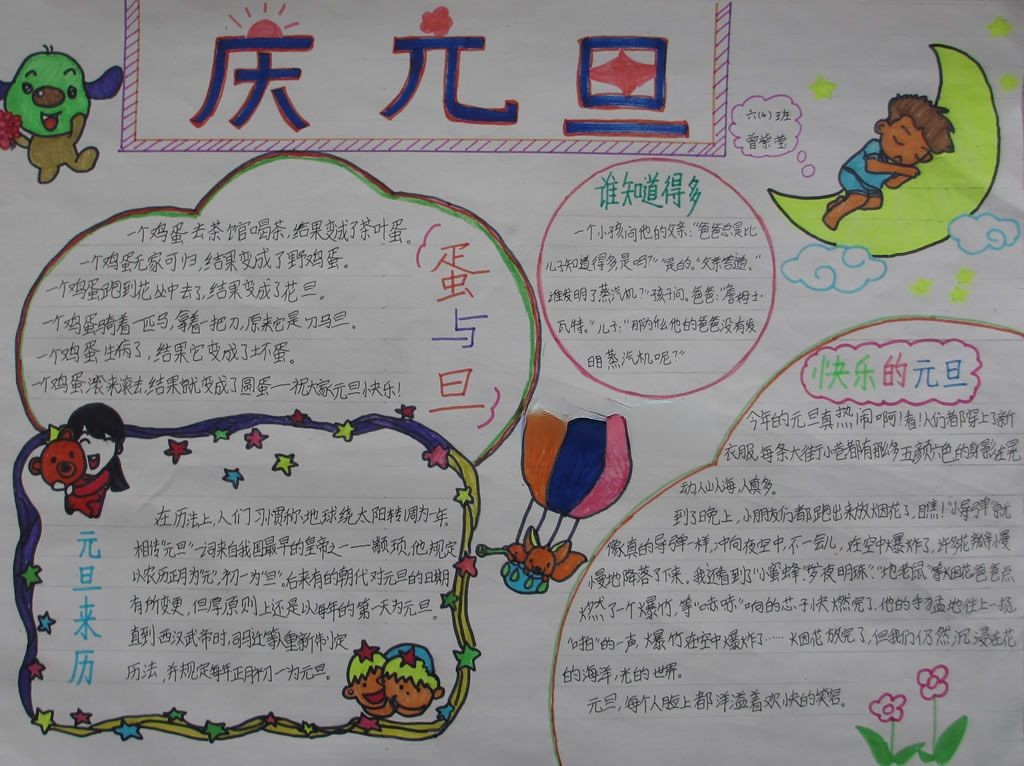 庆元旦
六(4)班
曾紫莹
一个鸡蛋去茶馆喝茶,结果变成了茶叶蛋。
一个鸡蛋无家可归,结果变成了野鸡蛋。
一个鸡蛋跑到花丛中去了,结果变成了花旦。
一个鸡蛋骑着一匹马,拿着一把刀,原来它是刀马旦。
一个鸡蛋生病了,结果它变成了坏蛋。
一个鸡蛋滚来滚去,结果就变成了圆蛋一祝大家元旦快乐!
蛋与旦
谁知道得多
一个小孩问他的父亲:“爸爸总是比
儿子知道得多是吗?”“是的。”父亲答道。”
谁发明了蒸汽机?”孩子问。爸爸:“詹姆士·
瓦特。”儿子:“那为什么他的爸爸没有发
明蒸汽机呢?”
元旦来历
在历法上,人们习惯称地球绕太阳转周为一年。
相传“元旦”一词来自我国最早的皇帝之一——颛顼,他规定
以农历正月为“元”,初一为“旦”。后来有的朝代对元旦的日期
有所变更,但厚原则上还是以每年的第一天为元旦。
直到西汉武帝时,司马迁等重新制定
历法,并规定每年正月初一为元旦。
快乐的元旦
今年的元旦真热闹啊!看!人们都穿上了新
衣服,每条大街小巷都有那多五颜六色的身影在晃
动,人山人海,人真多。
到了晚上,小朋友们都跑出来放烟花了,瞧!“小导弹”就
像真的导弹一样,冲向夜空中,不一会儿,在空中爆炸了,许多花瓣慢
慢地降落了下来。我还看到了“小蜜蜂”“夜明珠”“地老鼠”等烟花爸爸点
燃了一个爆竹,等“咔咔”响的芯子快燃完了,他的手猛地往上一扬,
“啪”的一声,爆竹在空中爆炸了……烟花放完了,但我们仍然沉浸在花
的海洋,光的世界。
元旦,每个人脸上都洋溢着欢快的笑容。